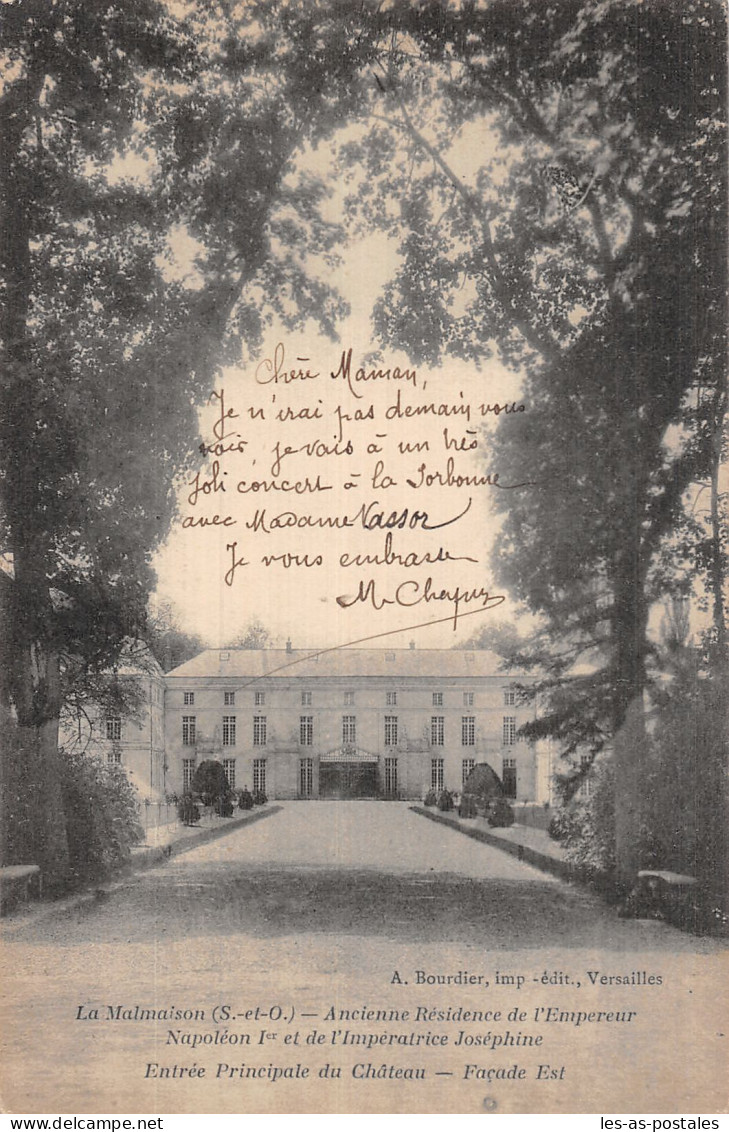 Chère Maman,
Je n'irai pas demain vous
voir, je vais à un très
joli concert à la Sorbonne
avec Madame Vassor
Je vous embrasse
M.
A. Bourdier, imp -édit., Versailles
La Malmaison (S.-et-O.) — Ancienne Résidence de l'Empereur
Napoléon Ier et de l'Impératrice Joséphine
Entrée Principale du Château — Façade Est
les-as-postales